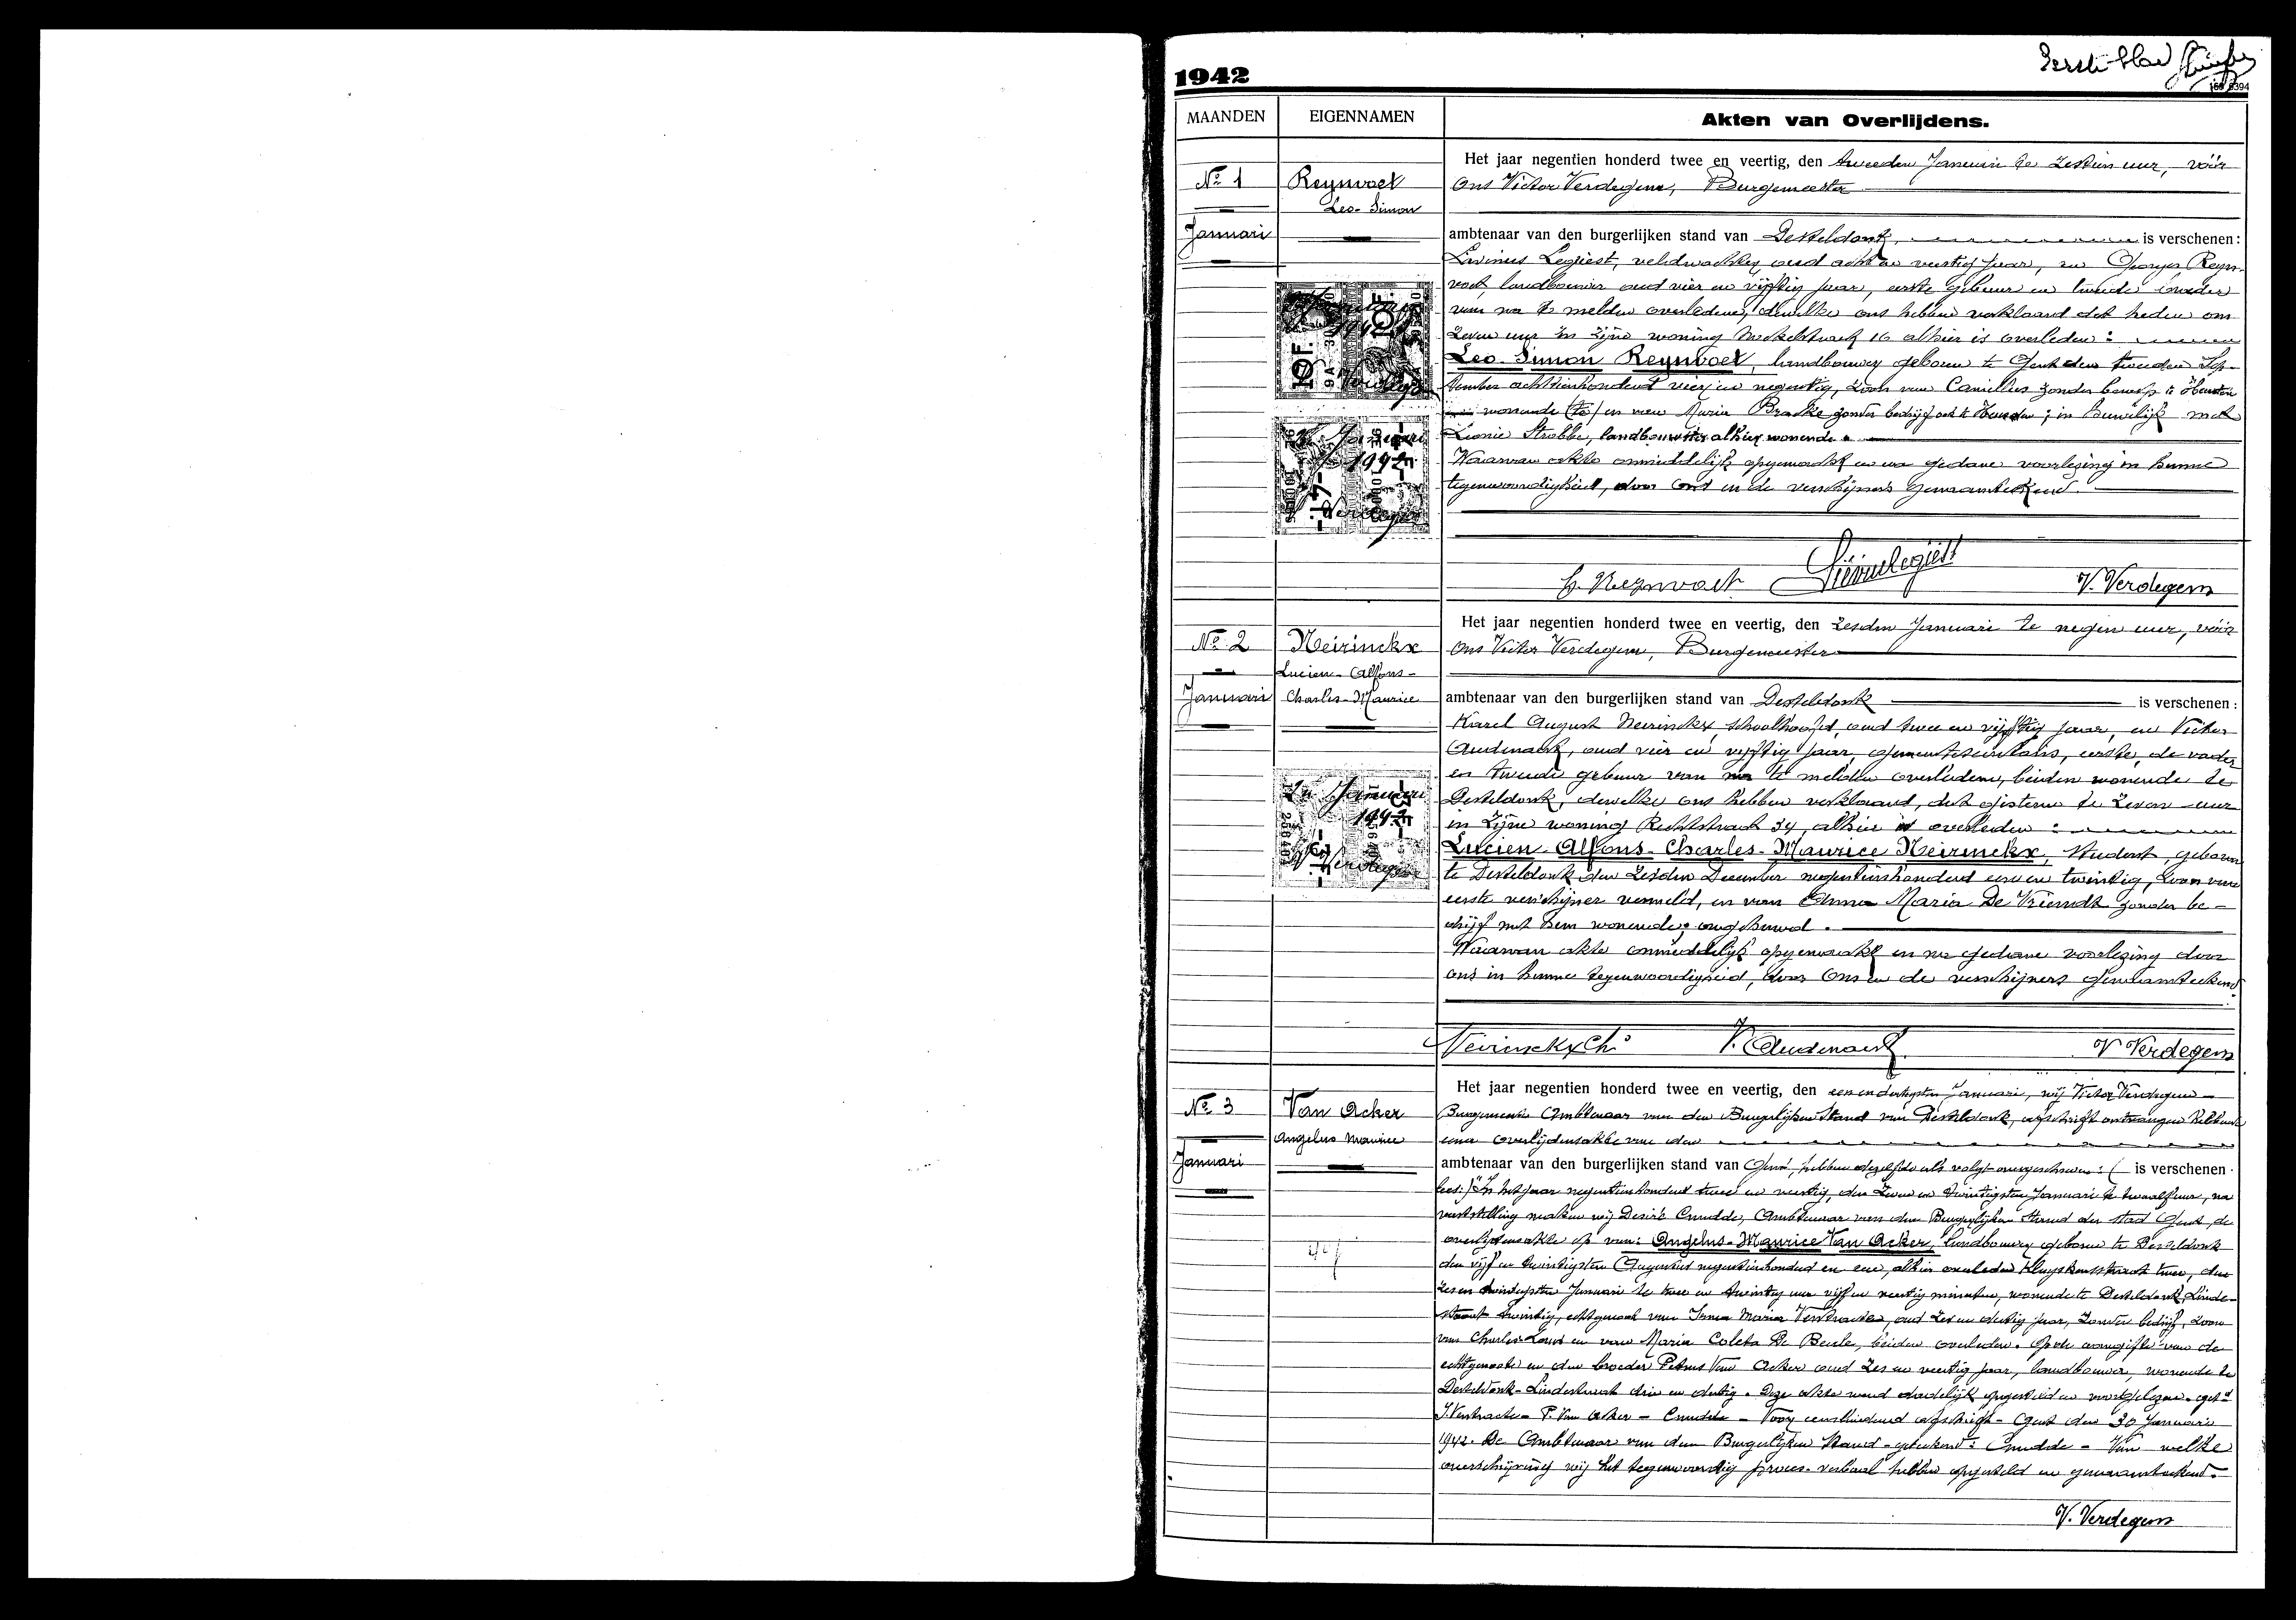 Eerste blad
1942
MAANDEN EIGENNAMEN Akten van Overlijdens.
Het jaar negentien honderd twee en veertig, den tweeden Januari te zestien uur, vóór
No 1 Reynvoet ons Victor Verdegem, Burgemeester
Leo-Simon
Januari ambtenaar van den burgerlijken stand van Desteldonk is verschenen:
Livinus Legiest, veldwachter, oud acht en veertig jaar, en Reyn-
voet, landbouwer oud vier en vijftig jaar, eerste gebuur en tweede broeder
van na te melden overledene, dewelke ons hebben verklaard dat heden om
zeven uur in zijne woning 16 alhier is overleden:
Leo-Simon Reynvoet, landbouwer, geboren te Gent den tweeden Sep-
tember achttienhonderd vier en negentig, zoon van Camillus zonder beroep te
wonende (te) en van Maria Bracke zonder bedrijf ook te ; in huwelijk met
Leonie Strobbe, landbouwster alhier wonende.
Waarvan akte onmiddelijk opgemaakt en na gedane voorlezing in hunne
tegenwoordigheid, door ons en de verschijners genaamteekend.
10F.
Januari
1942
V. Verdegem
G. Reynvoet Livinus Legiest V. Verdegem
Het jaar negentien honderd twee en veertig, den zesden Januari te negen uur, vóór
No 2 Neirinckx ons Victor Verdegem, Burgemeester
Lucien-Alfons-
Januari Charles-Maurice ambtenaar van den burgerlijken stand van Desteldonk is verschenen:
Karel August Neirinckx, schoolhoofd, oud twee en vijftig jaar, en Victor
Audenaert, oud vier en vijftig jaar, gemeentesecretaris, eerste, de vader
en tweede gebuur van na te melden overledene, beiden wonende te
Desteldonk, dewelke ons hebben verklaard, dat gisteren te zeven uur
in zijne woning Rechtstraat 34, alhier is overleden:
Lucien-Alfons-Charles-Maurice Neirinckx, student, geboren
te Desteldonk den zesden December negentienhonderd een en twintig, zoon van
eerste verschijner vermeld, en van Anna Maria De Vriendt zonder be-
drijf met hem wonende; ongehuwd.
Waarvan akte onmiddelijk opgemaakt en na gedane voorlezing door
ons in hunne tegenwoordigheid, door ons en de verschijners genaamteekend.
Januari
1942
V. Verdegem
Neirinckx Ch. V. Audenaert V. Verdegem
Het jaar negentien honderd twee en veertig, den een en dertigsten Januari, wij Victor Verdegem
No 3 Van Acker Burgemeester Ambtenaar van den Burgerlijken Stand van Desteldonk, afschrift ontvangen hebbende
Angelus Maurice eener overlijdensakte van den
Januari ambtenaar van den burgerlijken stand van Gent, hebben dezelfde als volgt overgeschreven: ( is verschenen
lees:) "In het jaar negentien honderd twee en veertig, den zeven en twintigsten Januari te twaalf uur, na
vaststelling maken wij Desiré Cnudde, Ambtenaar van den Burgerlijken Stand der stad Gent, de
overlijdensakte op van: Angelus-Maurice Van Acker, landbouwer, geboren te Desteldonk
den vijf en twintigsten Augustus negentienhonderd en een, alhier overleden Kluyskensstraat twee, den
zes en twintigsten Januari te twee en twintig uur vijf en veertig minuten, wonende te Desteldonk, Linde-
straat twintig, echtgenoot van Irma Maria Verstraete, oud zes en dertig jaar, zonder bedrijf, zoon
van Charles-Louis en van Maria Coleta De Beule, beiden overleden. Op de aangifte van de
echtgenoote en den broeder Petrus Van Acker oud zes en veertig jaar, landbouwer, wonende te
Desteldonk-Lindestraat drie en dertig. Deze akte werd dadelijk opgesteld en voorgelezen. get.d
I. Verstraete - P. Van Acker - Cnudde - Voor eensluidend afschrift - Gent den 30 Januari
1942. De Ambtenaar van den Burgerlijken Stand - geteekend: Cnudde - Van welke
overschrijving wij het tegenwoordig proces-verbaal hebben opgesteld en genaamteekend.
V. Verdegem